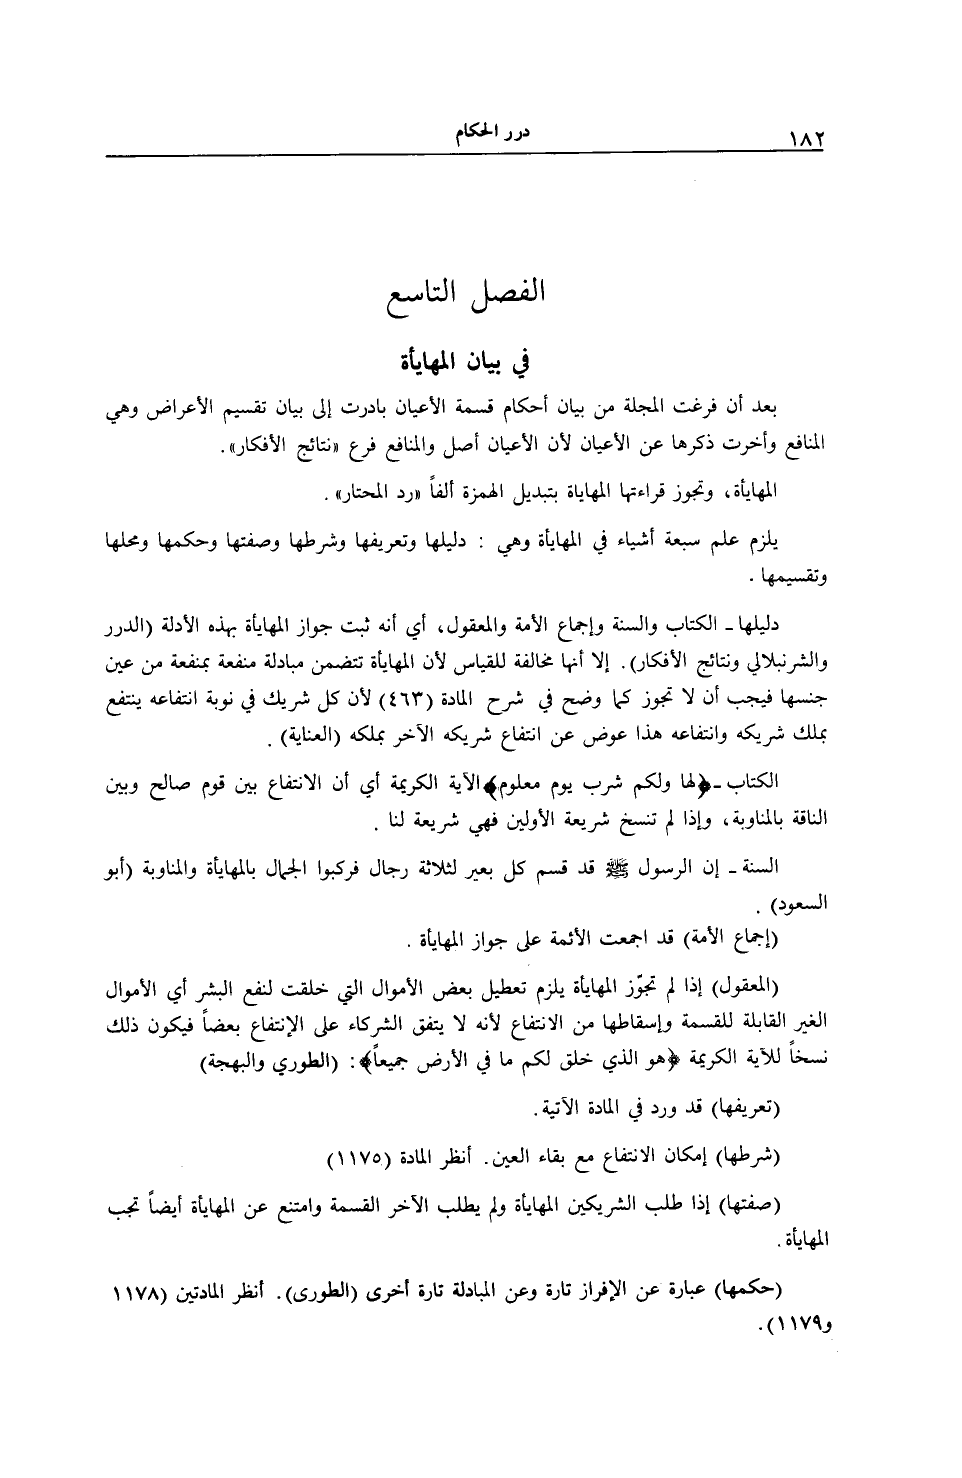 ١٨٢
درر الحكام
الفصل التاسع
في بيان المهايأة
بعد أن فرغت المجلة من بيان أحكام قسمة الأعيان بادرت إلى بيان تقسيم الأعراض وهي
المنافع وأخرت ذكرها عن الأعيان لأن الأعيان أصل والمنافع فرع «نتائج الأفكار».
المهايأة، وتجوز قراءتها المهاياة بتبديل الهمزة ألفاً «رد المحتار».
يلزم علم سبعة أشياء في المهايأة وهي : دليلها وتعريفها وشرطها وصفتها وحكمها ومحلها
وتقسيمها.
دليلها - الكتاب والسنة وإجماع الأمة والمعقول، أي أنه ثبت جواز المهايأة بهذه الأدلة (الدرر
والشرنبلالي ونتائج الأفكار). إلا أنها مخالفة للقياس لأن المهايأة تتضمن مبادلة منفعة بمنفعة من عين
جنسها فيجب أن لا تجوز كما وضح في شرح المادة (٤٦٣) لأن كل شريك في نوبة انتفاعه ينتفع
بملك شريكه وانتفاعه هذا عوض عن انتفاع شريكه الآخر بملكه (العناية).
الكتاب - ﴿لها ولكم شرب يوم معلوم﴾ الآية الكريمة أي أن الانتفاع بين قوم صالح وبين
الناقة بالمناوبة، وإذا لم تنسخ شريعة الأولين فهي شريعة لنا.
السنة - إن الرسول ﷺ قد قسم كل بعير لثلاثة رجال فركبوا الجمال بالمهايأة والمناوبة (أبو
السعود).
(إجماع الأمة) قد اجمعت الأئمة على جواز المهايأة.
(المعقول) إذا لم تجوّز المهايأة يلزم تعطيل بعض الأموال التي خلقت لنفع البشر أي الأموال
الغير القابلة للقسمة وإسقاطها من الانتفاع لأنه لا يتفق الشركاء على الإنتفاع بعضاً فيكون ذلك
نسخاً للآية الكريمة ﴿هو الذي خلق لكم ما في الأرض جميعاً﴾: (الطوري والبهجة)
(تعريفها) قد ورد في المادة الآتية.
(شرطها) إمكان الانتفاع مع بقاء العين. أنظر المادة (١١٧٥)
(صفتها) إذا طلب الشريكين المهايأة ولم يطلب الآخر القسمة وامتنع عن المهايأة أيضاً تجب
المهايأة.
(حكمها) عبارة عن الإفراز تارة وعن المبادلة تارة أخرى (الطورى). أنظر المادتين (١١٧٨
و١١٧٩).